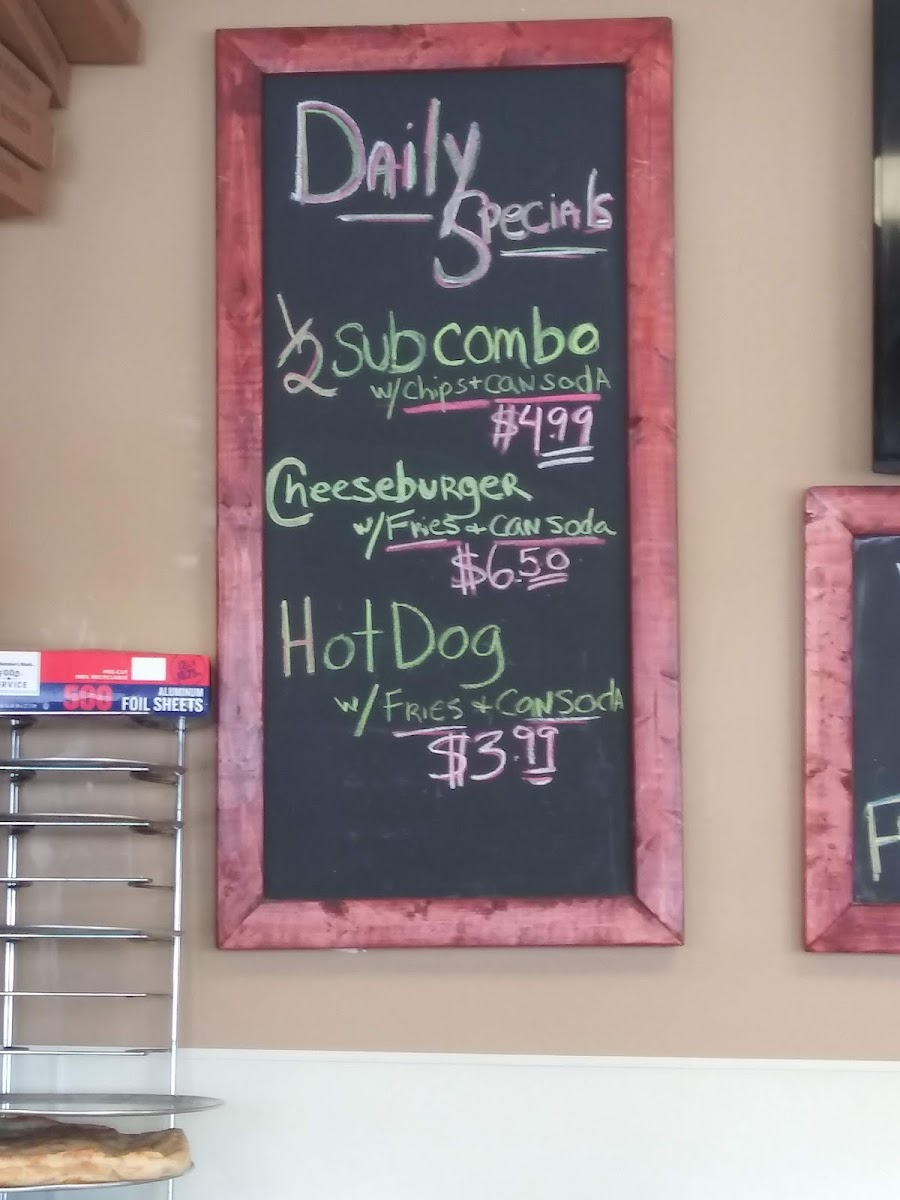 Daily
Specials
1/2 Sub combo
w/ chips + can soda
$4.99
Cheeseburger
w/ Fries + can soda
$6.50
Hot Dog
w/ Fries + can soda
$3.99
500
ALUMINUM
FOIL SHEETS